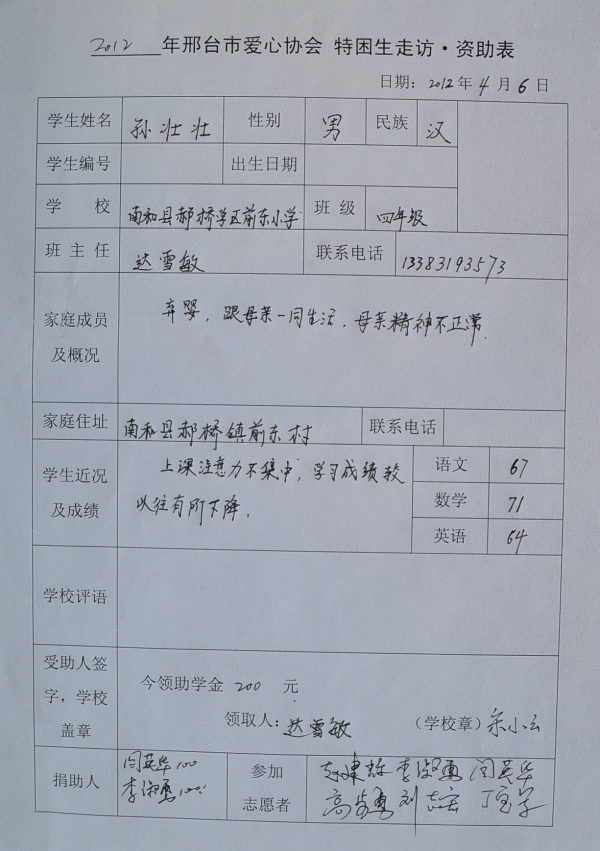 2012 年邢台市爱心协会 特困生走访·资助表
日期: 2012年4月6日
学生姓名 孙壮壮 性别 男 民族 汉
学生编号 出生日期
学 校 南和县郝桥学区前东小学 班 级 四年级
班 主 任 达雪敏 联系电话 13383193573
家庭成员 弃婴，跟母亲一同生活，母亲精神不正常.
及概况
家庭住址 南和县郝桥镇前东村 联系电话
学生近况 上课注意力不集中，学习成绩较 语文 67
及成绩 以往有所下降. 数学 71
英语 64
学校评语
受助人签
字，学校 今领助学金 200 元
盖章 领取人: 达雪敏 （学校章）宋小云
捐助人 闫英华100 参加 李淑勇 闫英华
李淑勇100 志愿者